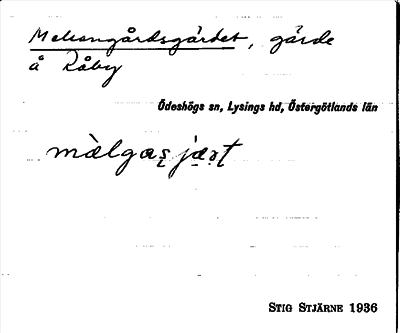 Mellangårdsgärdet, gärde
å Råby
Ödeshögs sn, Lysings hd, Östergötlands län
màlgas̨ jæ̣ṛt
STIG STJÄRNE 1936